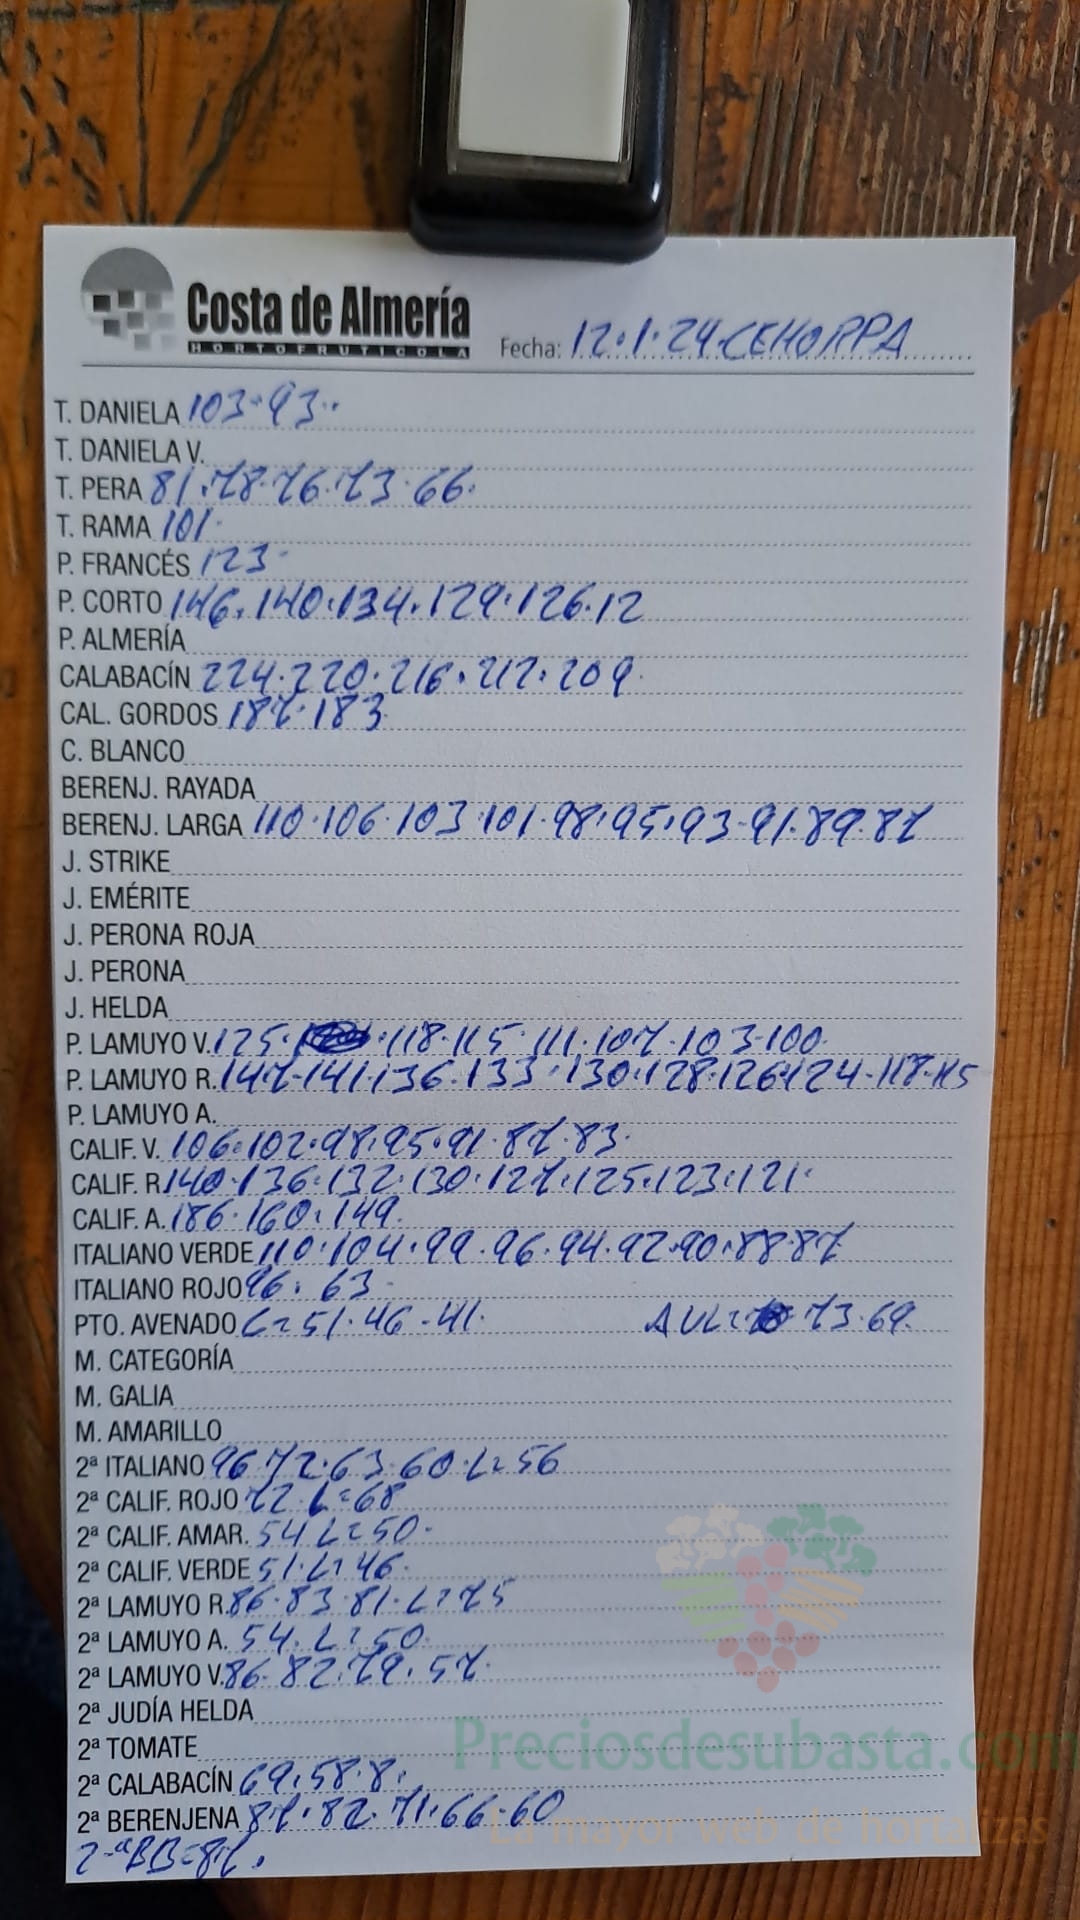 Costa de Almería
HORTOFRUTICOLA
Fecha: 12·1·24·CEHORPA
T. DANIELA 103·93··
T. DANIELA V.
T. PERA 81·78·76·73·66·
T. RAMA 101·
P. FRANCÉS 123·
P. CORTO 146·140·134·129·126·12
P. ALMERÍA
CALABACÍN 224·220·216·212·209·
CAL. GORDOS 187·183
C. BLANCO
BERENJ. RAYADA
BERENJ. LARGA 110·106·103·101·98·95·93·91·89·87
J. STRIKE
J. EMÉRITE
J. PERONA ROJA
J. PERONA
J. HELDA
P. LAMUYO V. 125·118·115·111·107·103·100·
P. LAMUYO R. 147·141·136·133·130·128·126·124·118·115
P. LAMUYO A.
CALIF. V. 106·102·98·95·91·87·83·
CALIF. R 140·136·132·130·127·125·123·121·
CALIF. A. 186·160·149·
ITALIANO VERDE 110·104·99·96·94·92·90·88·87
ITALIANO ROJO 96·63·
PTO. AVENADO L=51·46·41· 73·69·
M. CATEGORÍA
M. GALIA
M. AMARILLO
2ª ITALIANO 96·72·63·60·L=56
2ª CALIF. ROJO 72·L=68
2ª CALIF. AMAR. 54 L=50·
2ª CALIF. VERDE 51·L=46·
2ª LAMUYO R. 86·83·81·L=75
2ª LAMUYO A. 54·L=50·
2ª LAMUYO V. 86·82·79·57·
2ª JUDÍA HELDA
2ª TOMATE
Preciosdesubasta.com
2ª CALABACÍN 69·58·8·
2ª BERENJENA 87·82·71·66·60
La mayor web de hortalizas
2-ªBB=87·